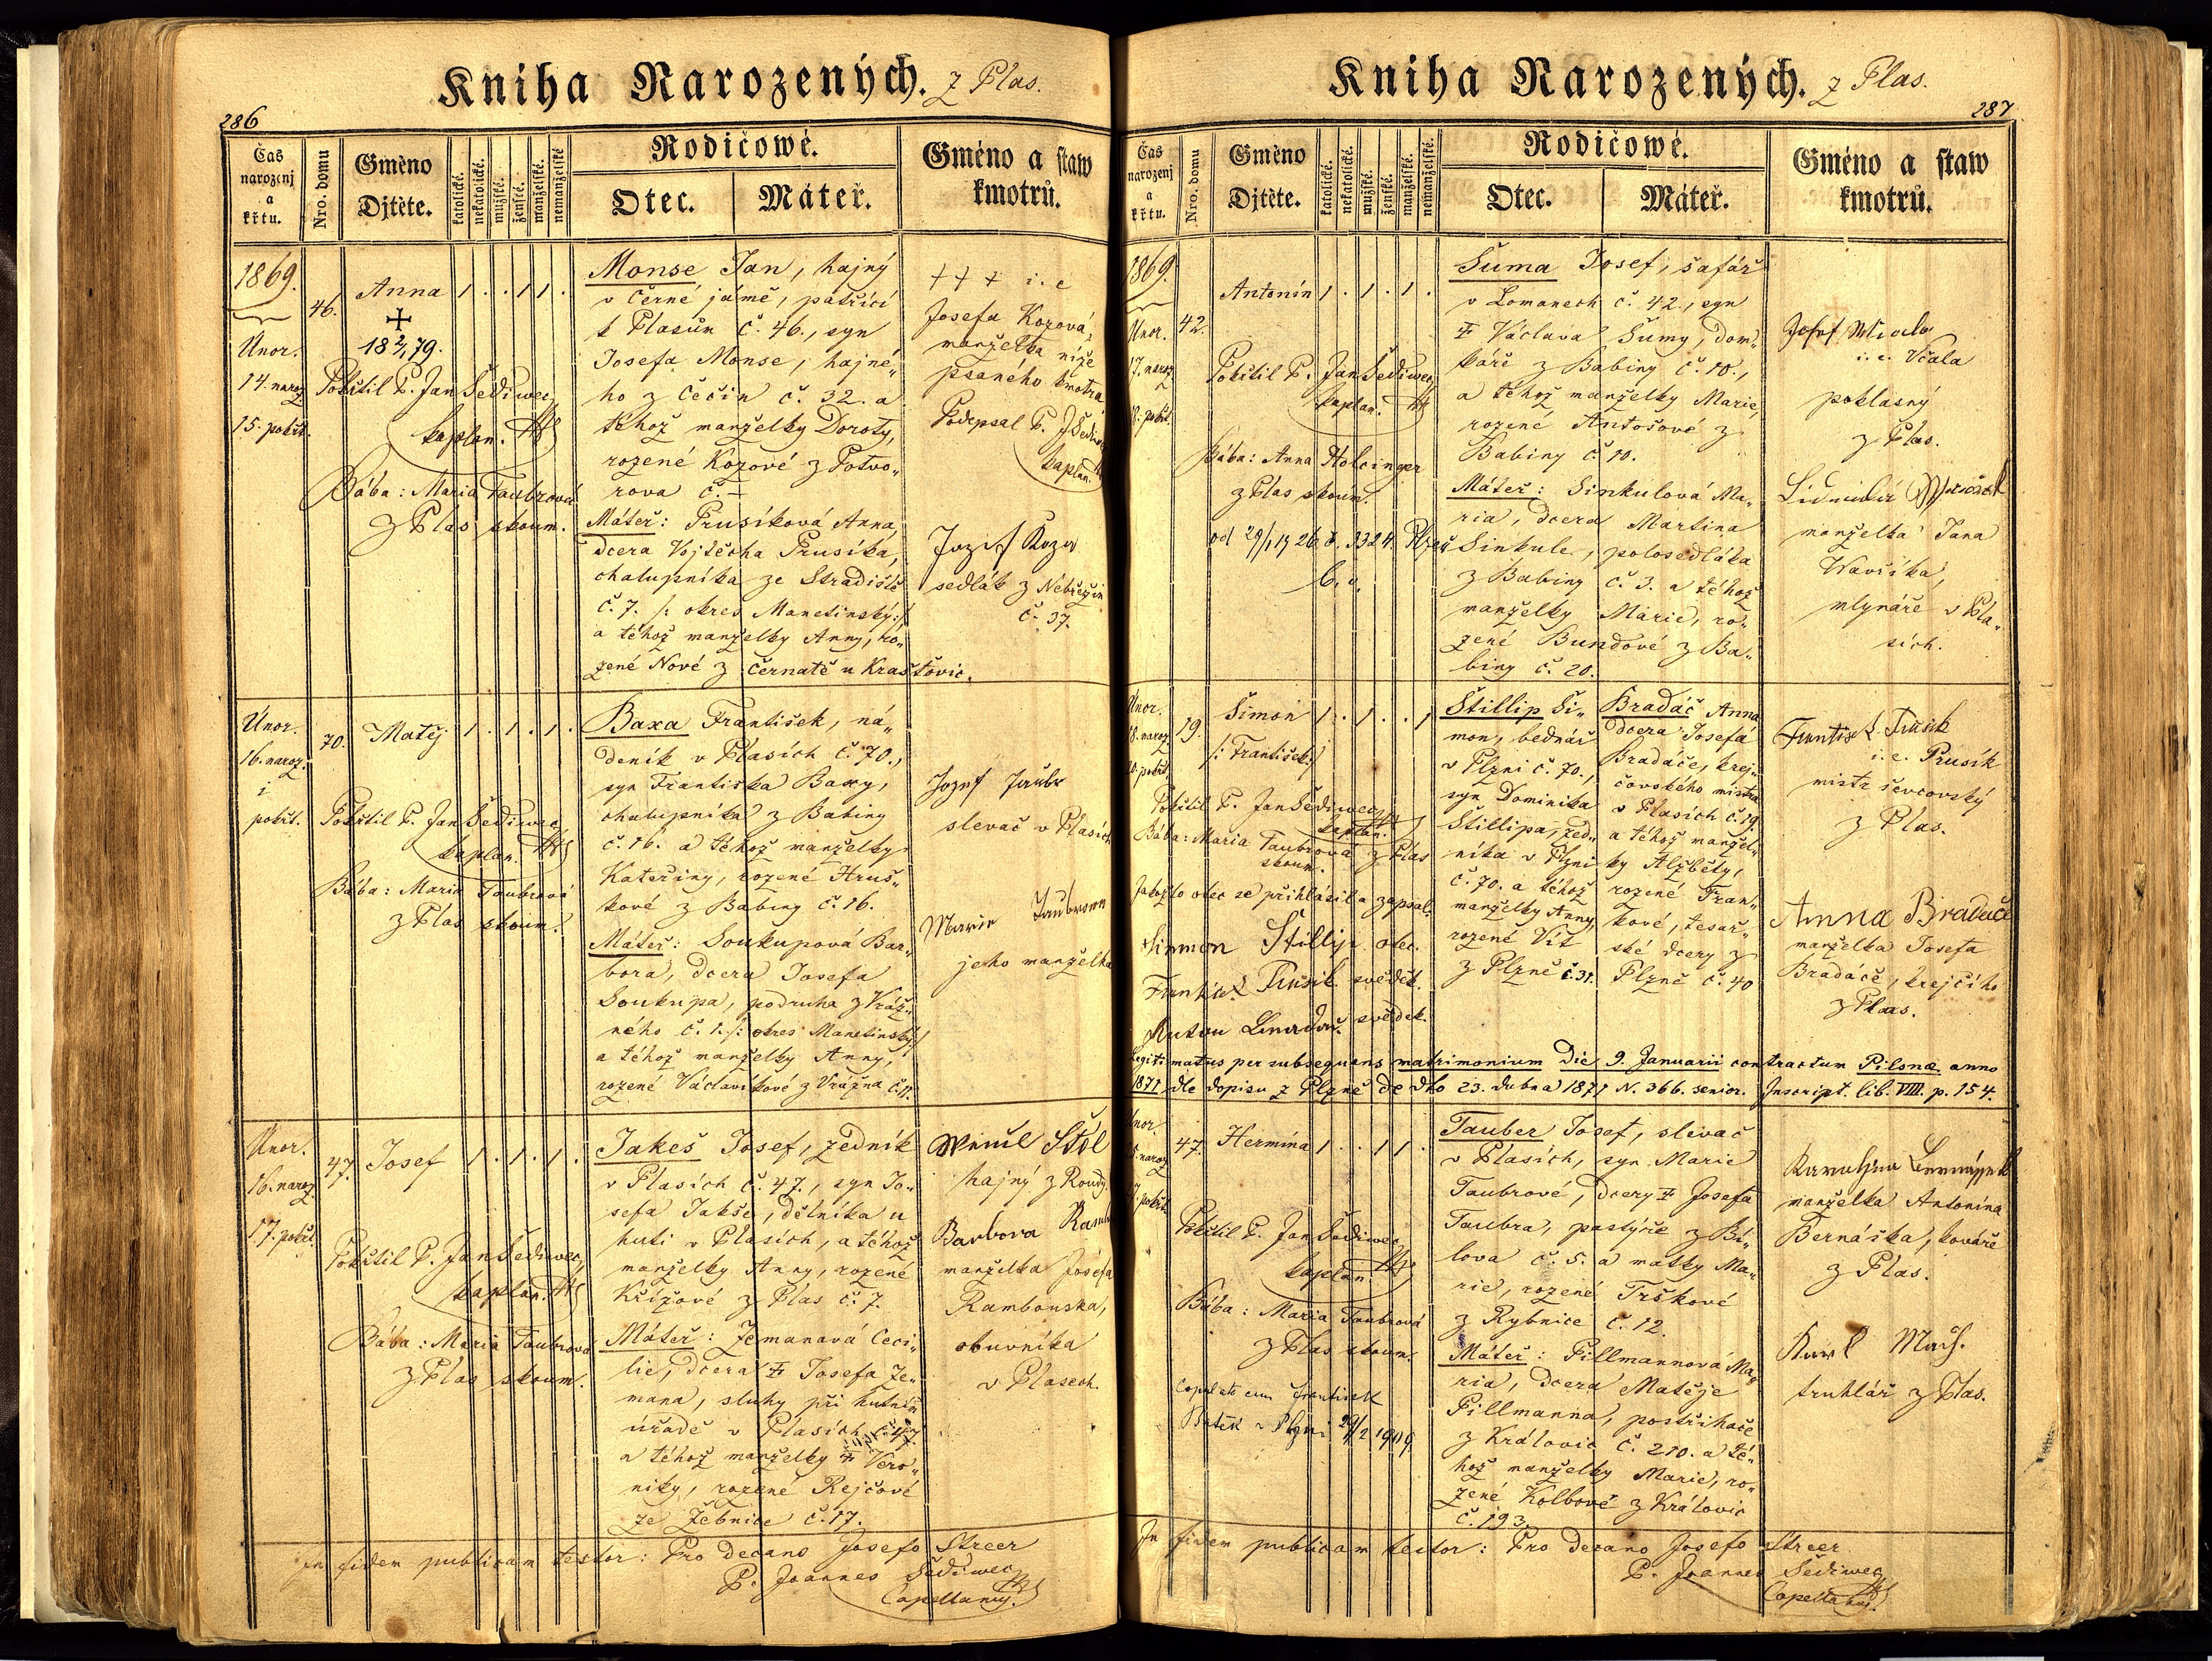 Kniha Narozených. z Plas.
286
Čas narozenj a křtu.
Nro. domu
Gméno Djtěte.
katolické.
nekatolické.
mužské.
ženské.
manželské
nemanželské
Rodičowé.
Otec.
Máteř.
Gméno a staw kmotrů.
1869.
Únor.
14. naroz.
15. pokřt.
46.
Anna 1 . . 1 1 .
+
18 2/1 79.
Pokřtil P. Jan Šediwec,
kaplan.
Bába: Maria Taubrová
z Plas zkoum.
Monse Jan, hajný
v Černé jámě, patřící
k Plasům č. 46., syn
Josefa Monse, hajné„
ho z Čečín č. 32. a
téhož manželky Doroty,
rozené Kozové z Potvo„
rova č. –
Máteř: Prusíková Anna,
dcera Vojtěcha Prusíka,
chalupníka ze Stradiště
č. 7. /: okres Manetinský :/
a téhož manželky Anny, ro„
zené Nové z Černatě u Kraštovic.
+++ i. e
Josefa Kozová,
manželka níže
psaného kmotra.
Podepsal P. J Šediwec
kaplan.
Jozef Koza
sedlák z Nebřezin
č. 37.
Únor.
16. naroz.
i
pokřt.
70.
Matěj 1 . 1 . 1 .
Pokřtil P. Jan Šediwec,
kaplan.
Bába: Maria Taubrová
z Plas zkoum.
Baxa František, ná„
deník v Plasích č. 70.,
syn Františka Baxy,
chalupníka z Babiny
č. 16. a téhož manželky
Kateřiny, rozené Hruš„
kové z Babiny č. 16.
Máteř: Soukupová Bar„
bora, dcera Josefa
Soukupa, podruha z Vráž„
ného č. 1. /: okres Manetinský :/
a téhož manželky Anny,
rozené Václavíkové z Vrážna č. 11.
Jozef Taubr
slevač v Plasích
Marie Taubrowa
jeho manželka
Únor.
16. naroz.
17. pokřt.
47.
Josef 1 . 1 . 1 .
Pokřtil P. Jan Šediwec,
kaplan.
Bába: Maria Taubrová
z Plas zkoum.
Jakeš Josef, zedník
v Plasích č. 47., syn Jo„
sefa Jakše, dělníka u
huti v Plasích, a téhož
manželky Anny, rozené
Křížové z Plas č. 7.
Máteř: Zemanová Ceci„
lie, dcera † Josefa Ze„
mana, sluhy při hutním
úřadě v Plasích č. 47.
a téhož manželky † Vero„
niky, rozené Rejčové
ze Žebnice č. 17.
hajný z Roudy.
Barbora
manželka Josefa
Rambouska,
obuvníka
v Plasech.
In fidem publicam testor: Pro decano Josefo Streer
P. Joannes Šediwec,
Capellanus.
Kniha Narozených. z Plas.
287
Čas narozenj a křtu.
Nro. domu
Gméno Djtěte.
katolické.
nekatolické.
mužské.
ženské.
manželské.
nemanželské.
Rodičowé.
Otec.
Máteř.
Gméno a staw kmotrů.
1869.
Únor.
17. naroz
18. pokřt.
42.
Antonín 1 . 1 . 1 .
Pokřtil P. Jan Šediwec,
kaplan.
Bába: Anna Holcinger
z Plas zkoum.
Šuma Josef, šafář
v Lomanech č. 42., syn
† Václava Šumy, dom„
káře z Babiny č. 10.,
a téhož manželky Marie,
rozené Antošové z
Babiny č. 10.
Máteř: Sinkulová Ma„
ria, dcera Martina
Sinkule, polosedláka
z Babiny č. 3. a téhož
manželky Marie, ro„
zené Bundové z Ba„
biny č. 20.
i. e. Včala
poklasný
z Plas.
manželka Jana
Wavříka,
mlynáře v Pla„
sích.
Únor.
18. naroz
20. pokřt.
19.
Šimon 1 . 1 . . 1
/: František :/
Pokřtil P. Jan Šediwec,
kaplan.
Bába: Maria Taubrová z Plas
zkoum.
Jakožto otec se přihlásil a zapsal.
Simon Štillip otec.
František Prusik svědek.
svědek.
Štillip Ši„
mon, bednář
v Plzni č. 70.,
syn Dominika
Štillipa, zed„
níka v Plzni
č. 70. a téhož
manželky Anny,
rozené Vít
z Plzně č. 31.
Bradáč Anna
dcera Josefa
Bradáče, krej„
čovského mistra
v Plasích č. 19.
a téhož manžel„
ky Alžběty,
rozené Fran„
kové, tesař„
ské dcery z
Plzně č. 40
i. e. Prusík
mistr ševcovský
z Plas.
Anna Bradače
manželka Josefa
Bradáče, krejčího
z Plas.
Legitimatus per subsequens matrimonium die 9. Januarii contractum Pilsnae anno
1871 dle dopisu z Plzně de dto 23. dubna 1871 N. 366. senior. Inscript. lib. VIII. p. 154.
Únor.
47.
Hermína 1 . . 1 1 .
Pokřtil P. Jan Šediwec,
kaplan.
Bába: Maria Taubrová
z Plas zkoum.
Tauber Josef, slevač
v Plasích, syn Marie
Taubrové, dcery † Josefa
Taubra, pastýře z Bí„
lova č. 5. a matky Ma„
rie, rozené Trškové
z Rybnice č. 12.
Máteř: Pillmannová Ma„
ria, dcera Matěje
Pillmanna, postřihače
z Královic č. 210. a té„
hož manželky Marie, ro„
zené Kolbové z Královic
č. 193.
manželka Antonína
Bernáška, kováře
z Plas.
Karl Mach.
truhlář z Plas.
In fidem publicam testor: Pro decano Josefo Streer
P. Joannes Šediwec,
Capellanus.